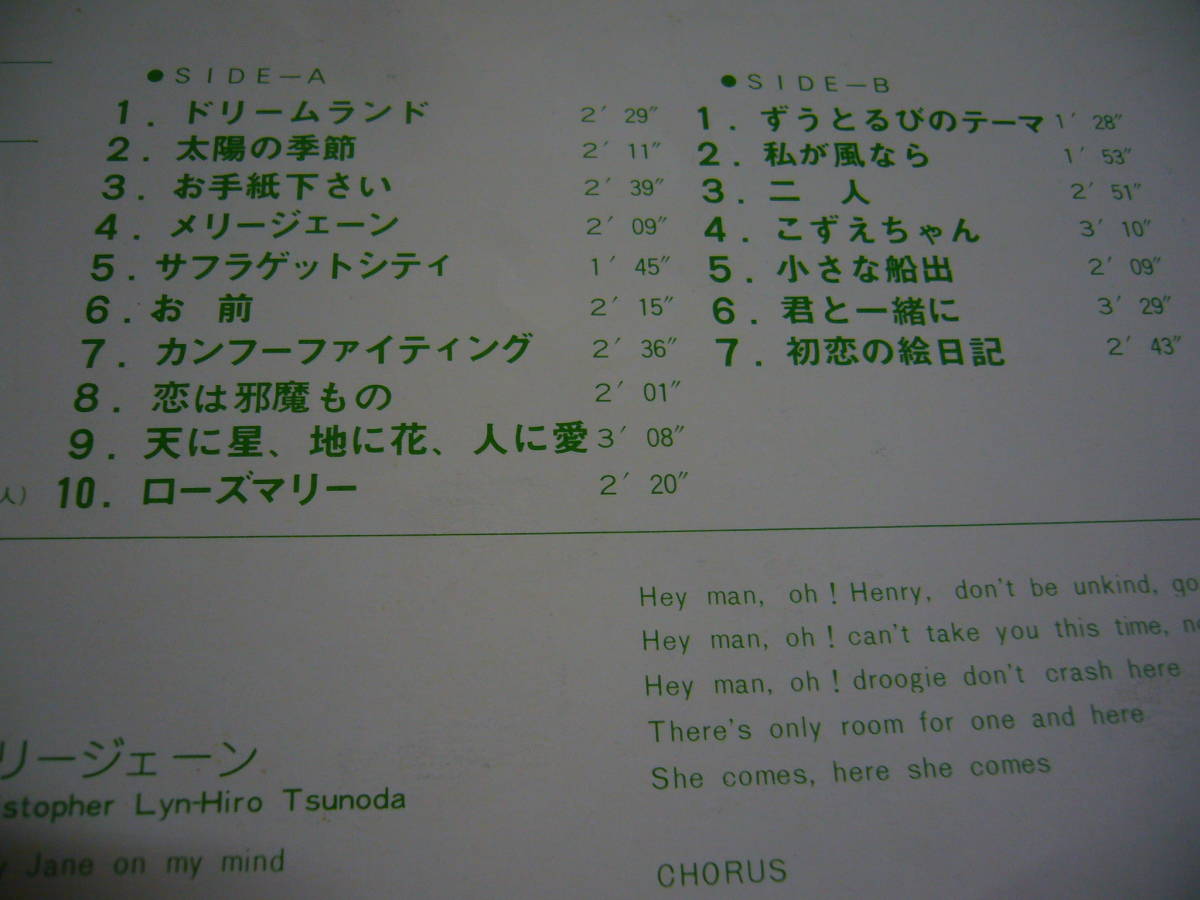 ●SIDE—A
1. ドリームランド 2′ 29″
2. 太陽の季節 2′ 11″
3. お手紙下さい 2′ 39″
4. メリージェーン 2′ 09″
5. サフラゲットシティ 1′ 45″
6. お 前 2′ 15″
7. カンフーファイティング 2′ 36″
8. 恋は邪魔もの 2′ 01″
9. 天に星、地に花、人に愛 3′ 08″
人) 10. ローズマリー 2′ 20″
●SIDE—B
1. ずうとるびのテーマ 1′ 28″
2. 私が風なら 1′ 53″
3. 二 人 2′ 51″
4. こずえちゃん 3′ 10″
5. 小さな船出 2′ 09″
6. 君と一緒に 3′ 29″
7. 初恋の絵日記 2′ 43″
リージェーン
stopher Lyn-Hiro Tsunoda
y Jane on my mind
Hey man, oh! Henry, don't be unkind, go
Hey man, oh! can't take you this time, no
Hey man, oh! droogie don't crash here
There's only room for one and here
She comes, here she comes
CHORUS